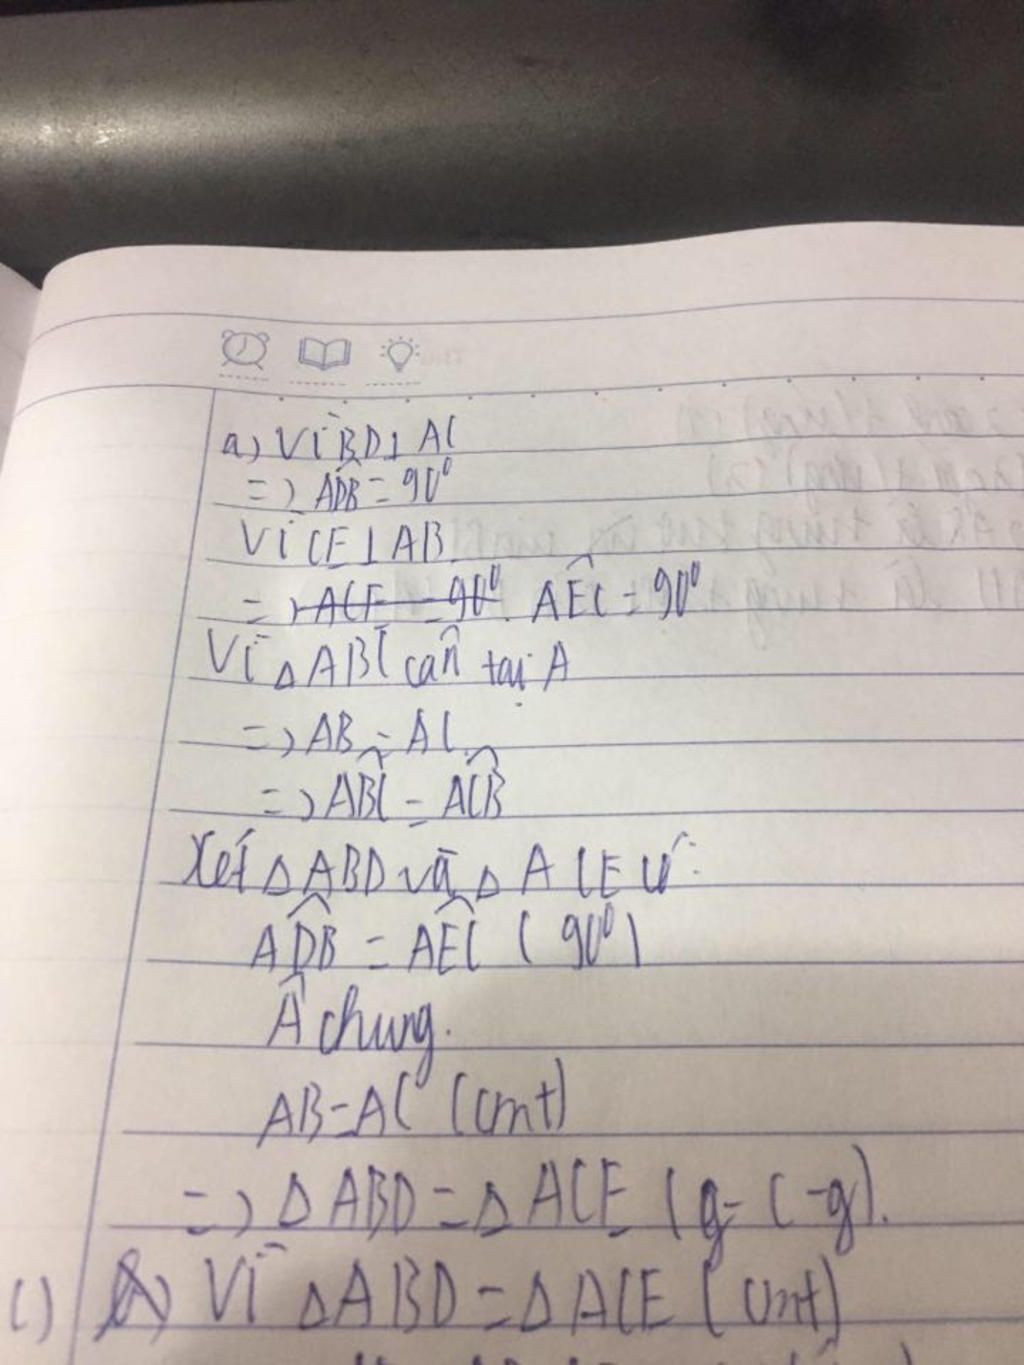 a) Vì BD⊥AC
=> ADB̂ = 90⁰
Vì CE⊥AB
=> ACE = 90⁰. AÊC = 90⁰
Vì △ABC cân tại A
=> AB = AC.
=> AB̂C = AĈB
Xét △ABD và △ACE có:
AD̂B = AÊC (90⁰)
Â chung.
AB=AC (cmt)
=> △ABD = △ACE (g-c-g).
c) Vì △ABD = △ACE (cmt)